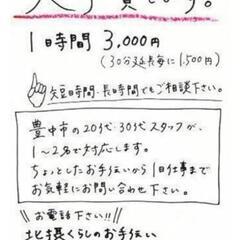 1時間 3,000円
(30分延長毎に1,500円)
短時間・長時間でもご相談下さい。
豊中市の20代・30代スタッフが、
1〜2名で対応します。
ちょっとしたお手伝いから1日仕事まで
お気軽にお問い合わせ下さい。
\\お電話下さい!!//
北摂くらしのお手伝い